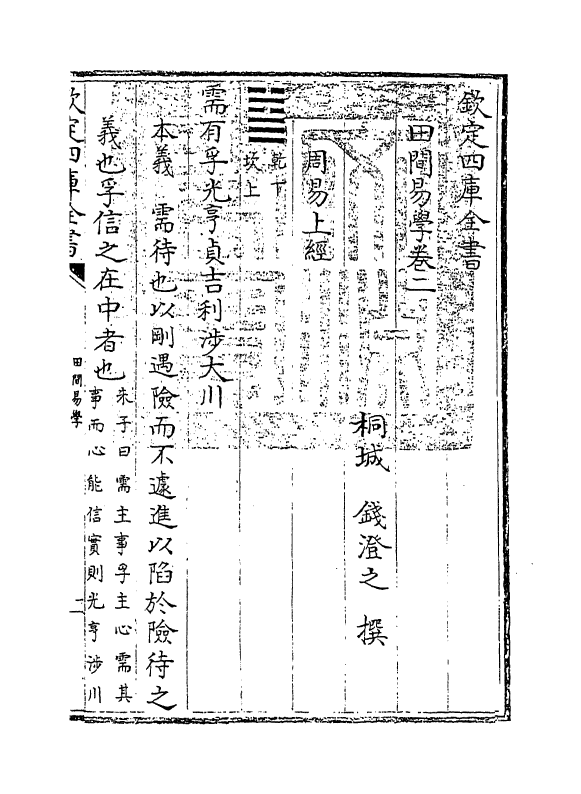 欽定四庫全書
田間易學卷二
桐城　錢澄之　撰
周易上經
乾下
坎上
需有孚光亨貞吉利涉大川
本義　需待也以剛遇險而不遽進以陷於險待之
義也孚信之在中者也
朱子曰需主事孚主心需其
事而心能信實則光亨涉川
欽定四庫全書
田間易學